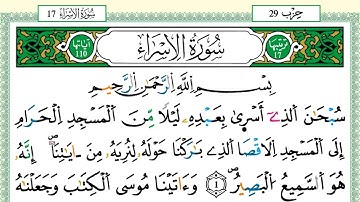 حزب 29
سُورَةُ الْإِسْرَاءِ 17
ترتيبها 17
سُورَةُ الْإِسْرَاءِ
آياتها 110
بِسْمِ اللَّهِ الرَّحْمَٰنِ الرَّحِيمِ
سُبْحَٰنَ الَّذِے أَسْرَىٰ بِعَبْدِهِۦ لَيْلًا مِّنَ الْمَسْجِدِ الْحَرَامِ
إِلَى الْمَسْجِدِ الْأَقْصَا الَّذِے بَٰرَكْنَا حَوْلَهُۥ لِنُرِيَهُۥ مِنَ ءَايَٰتِنَآ إِنَّهُۥ
هُوَ السَّمِيعُ الْبَصِيرُ 1 وَءَاتَيْنَا مُوسَى الْكِتَٰبَ وَجَعَلْنَٰهُ